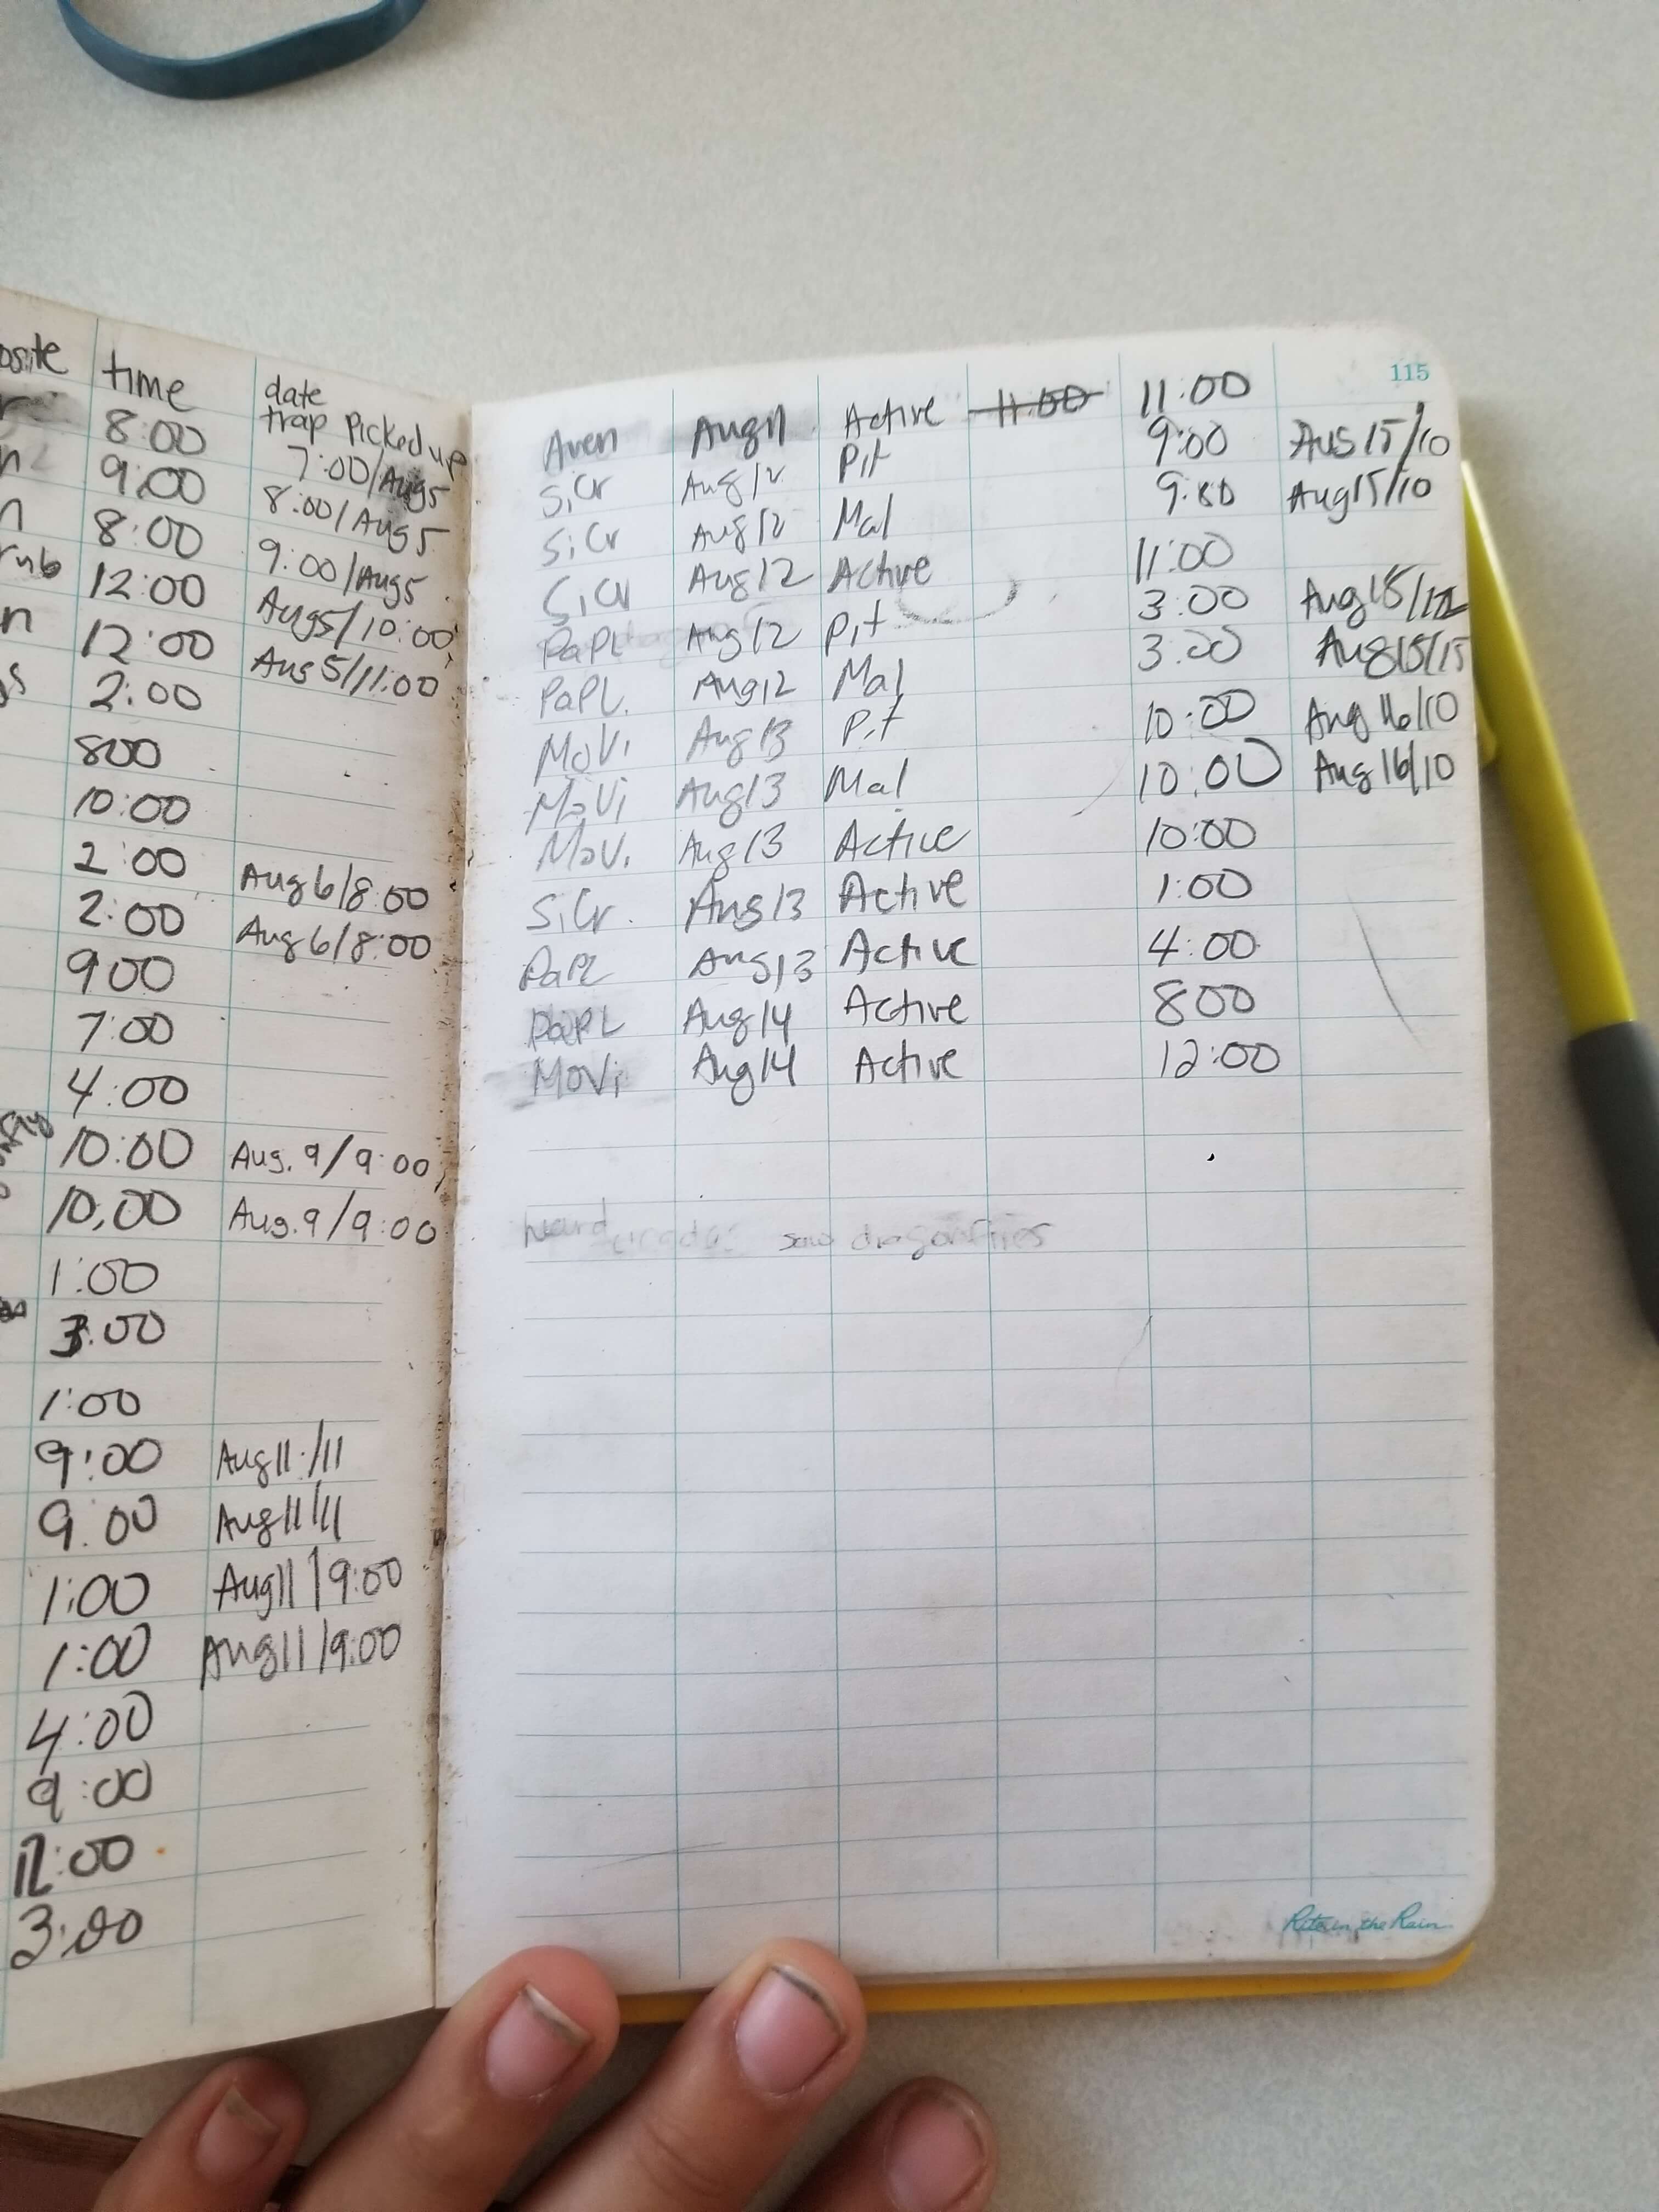 osite time date
trap Picked up
8:00 7:00/Aug5
9:00 8:00/Aug5
8:00 9:00/Aug5
12:00 Aug5/10:00
12:00 Aug5/11:00
2:00
800
10:00
2:00 Aug6/8:00
2:00 Aug6/8:00
900
7:00
4:00
10:00 Aug. 9/9:00
10,00 Aug. 9/9:00
1:00
3:00
1:00
9:00 Aug11/11
9:00 Aug11/11
1:00 Aug11/9:00
1:00 Aug11/9:00
4:00
9:00
12:00
3:00
115
Aven Aug11 Active 11:00 11:00
SiCr Aug12 Pit 9:00 Aug15/10
SiCr Aug12 Mal Aug15/10
SiCr Aug12 Active 11:00
PaPL Aug12 Pit 3:00
PaPL. Aug12 Mal 3:00 Aug15/15
MoVi Aug13 Pit 10:00 Aug16/10
MoVi Aug13 Mal 10:00 Aug16/10
MoVi Aug13 Active 10:00
SiCr. Aug13 Active 1:00
PaPL Aug13 Active 4:00
PaPL Aug14 Active 800
MoVi Aug14 Active 12:00
heard saw dragonflies
Rite in the Rain